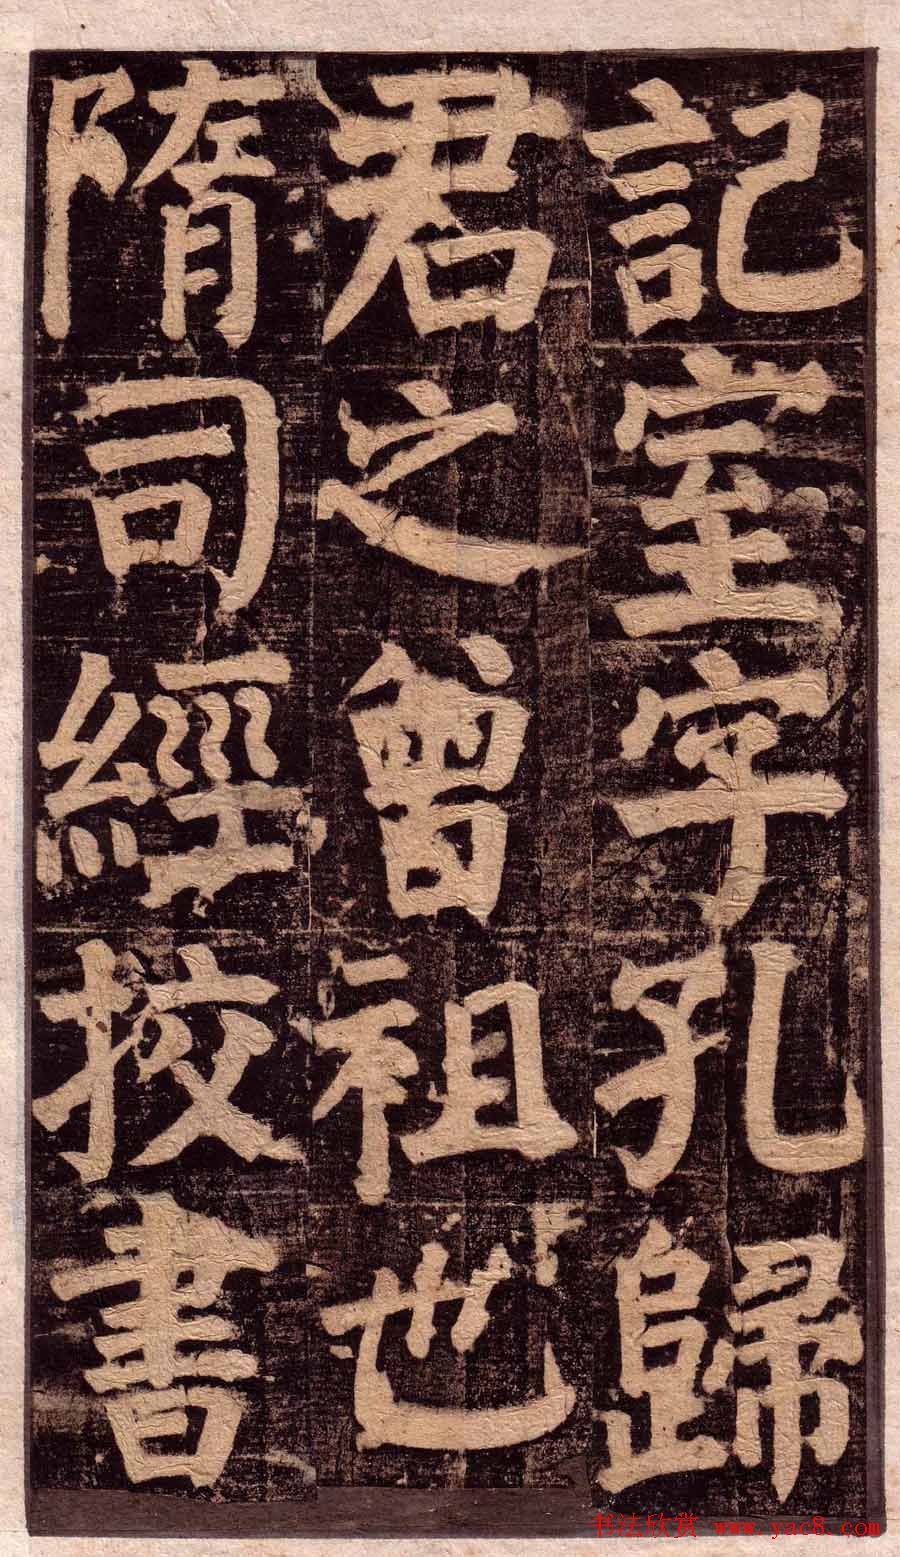 記室字孔歸
君之曾祖也
隋司經挍書
书法欣赏 www.yac8.com